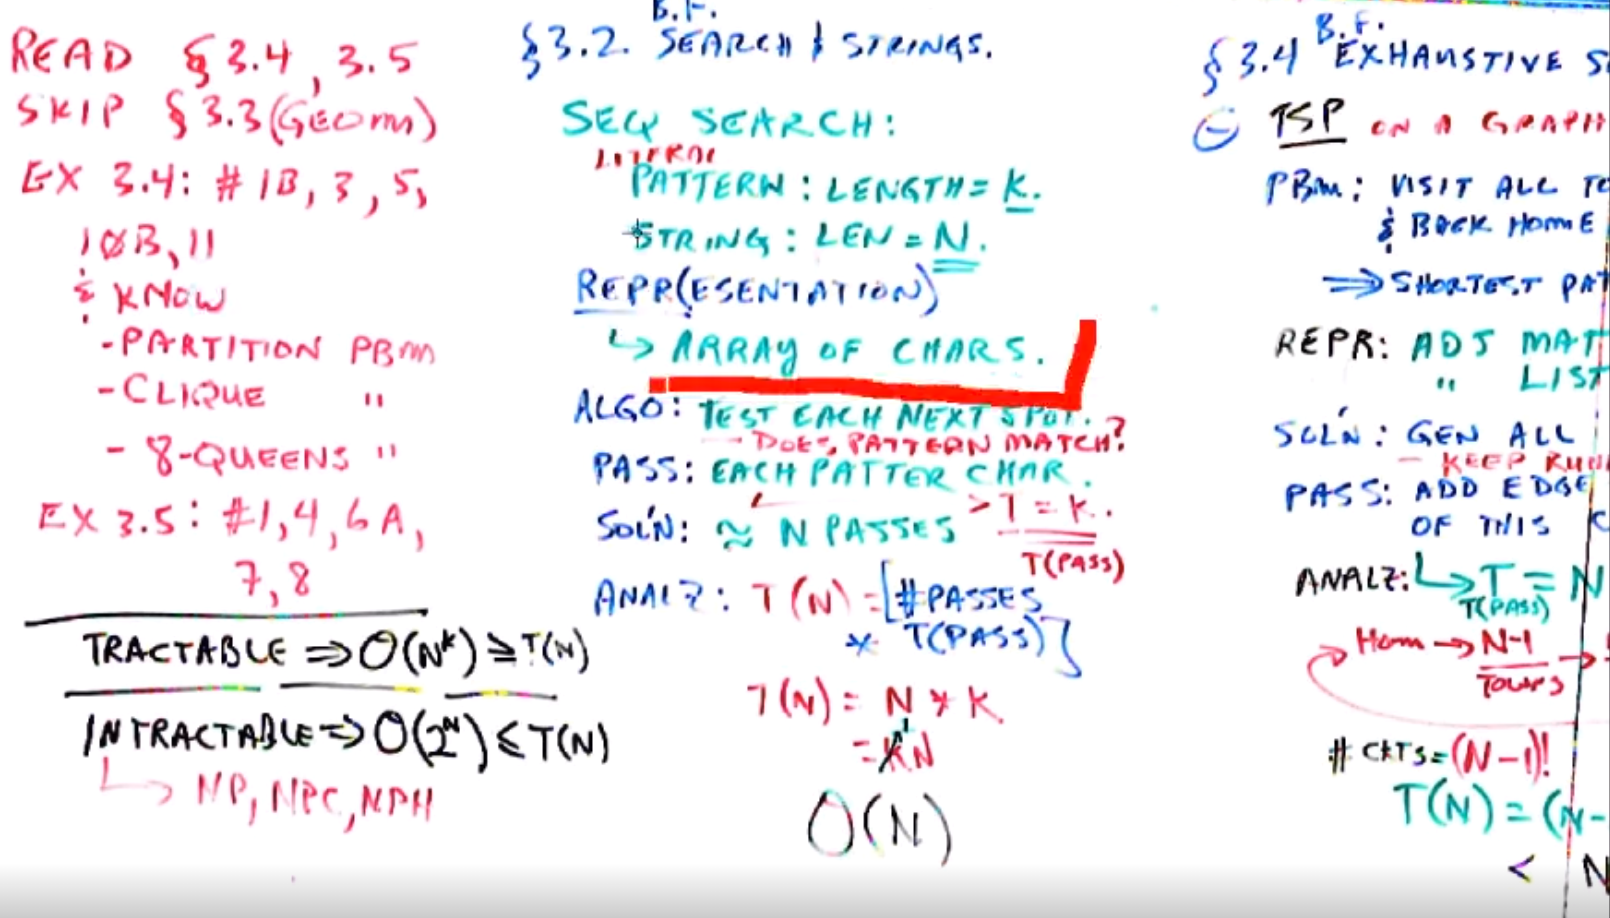 READ §3.4, 3.5
SKIP §3.3 (GEOM)
EX 3.4: #1B, 3, 5,
10B, 11
& KNOW
- PARTITION PBM
- CLIQUE "
- 8-QUEENS "
EX 3.5: #1, 4, 6A,
7, 8
TRACTABLE ⇒ O(N^k) ≥ T(N)
INTRACTABLE ⇒ O(2^N) ≤ T(N)
↳ NP, NPC, NPH
B.F.
§3.2. SEARCH & STRINGS.
SEQ SEARCH:
LITERAL
PATTERN: LENGTH = K.
STRING: LEN = N.
REPR(ESENTATION)
↳ ARRAY OF CHARS.
ALGO: TEST EACH NEXT SPOT.
— DOES PATTERN MATCH?
PASS: EACH PATTER CHAR.
> T = K.
SOL'N: ≈ N PASSES
T(PASS)
ANALZ: T(N) = [#PASSES
* T(PASS)]
T(N) = N * K
= KN
O(N)
B.F.
§3.4 EXHAUSTIVE S
TSP ON A GRAPH
PBM: VISIT ALL TO
& BACK HOME
⇒ SHORTEST PAT
REPR: ADJ MAT
" LIST
SOL'N: GEN ALL
— KEEP RUN
PASS: ADD EDGE
OF THIS C
ANALZ: ↳ T = N
T(PASS)
HOM → N-1 →
TOURS
# CKTS = (N-1)!
T(N) = (N-
< N